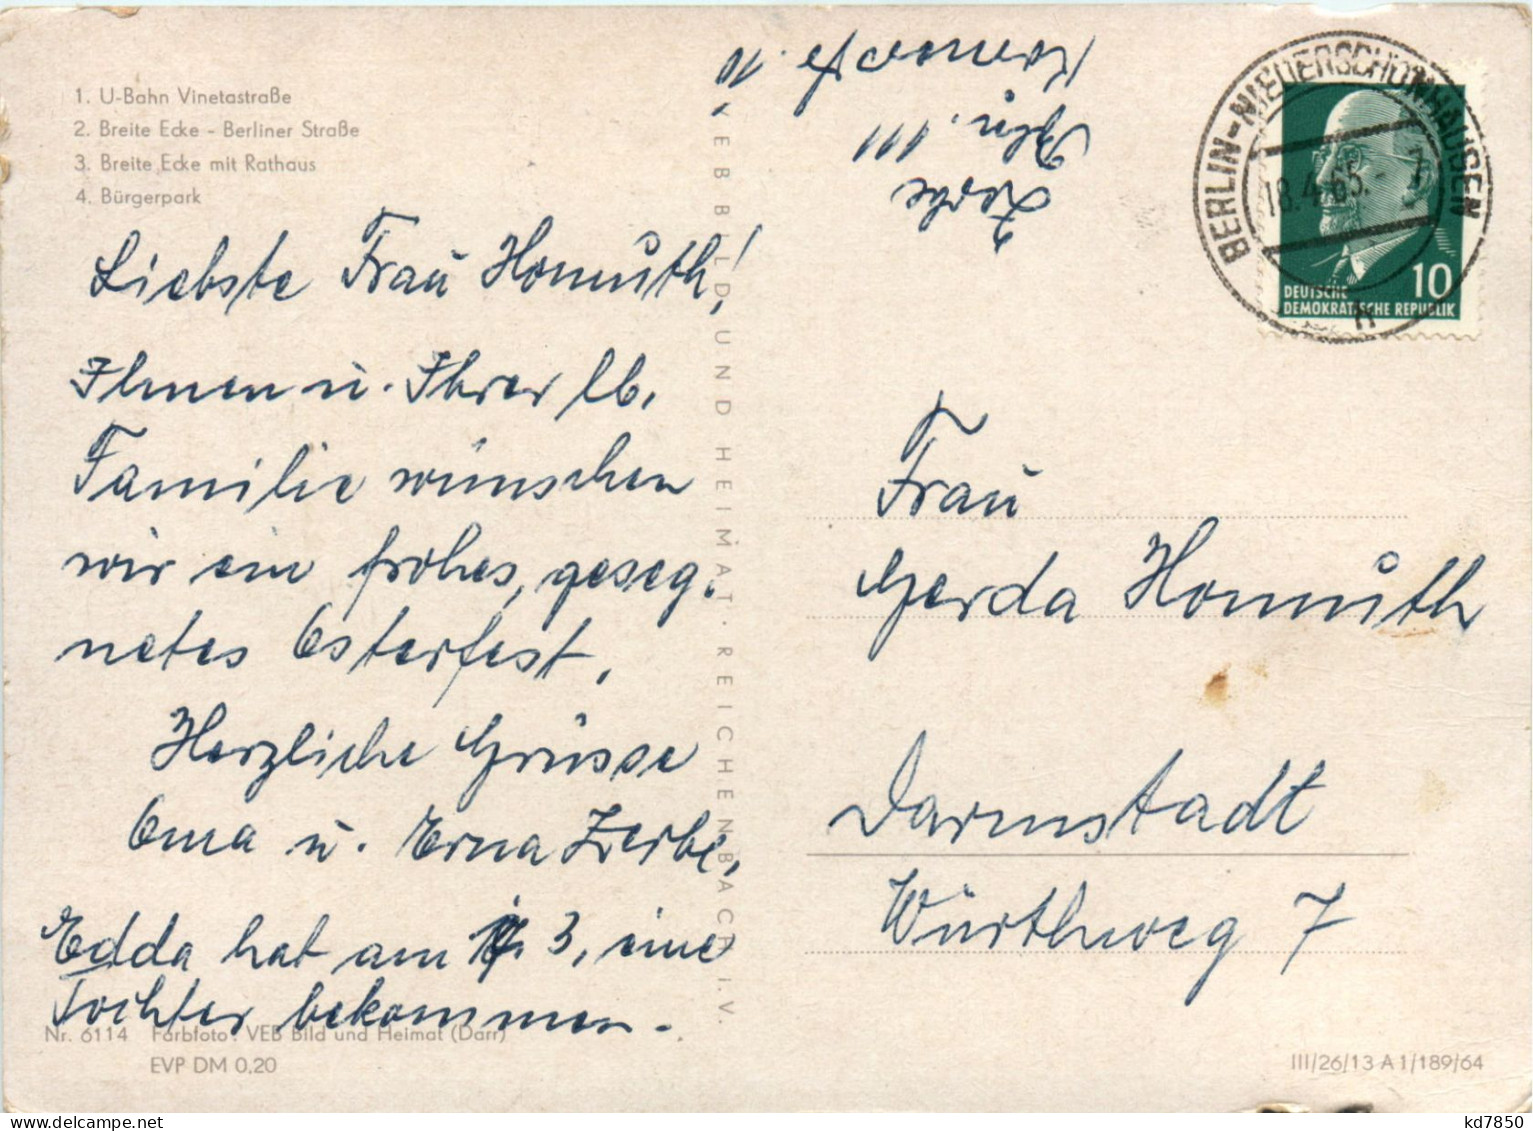 1. U-Bahn Vinetastraße
2. Breite Ecke - Berliner Straße
3. Breite Ecke mit Rathaus
4. Bürgerpark
Liebste Frau Homuth!
Ihnen u. Ihrer lb.
Familie wünschen
wir ein frohes, geseg-
netes Osterfest,
Herzliche Grüsse
Oma u. Erna Zerbe,
Edda hat am 3, eine
Tochter bekommen.
Nr. 6114 Farbfoto: VEB Bild und Heimat (Darr)
EVP DM 0,20
VEB BILD UND HEIMAT · REICHENBACH I. V.
Zerbe
Bln. 111
10
BERLIN-NIEDERSCHÖNHAUSEN
18.4.65.- 7
n
10
DEUTSCHE
DEMOKRATISCHE REPUBLIK
Frau
Gerda Homuth
Darmstadt
Würthweg 7
III/26/13 A 1/189/64
kd7850